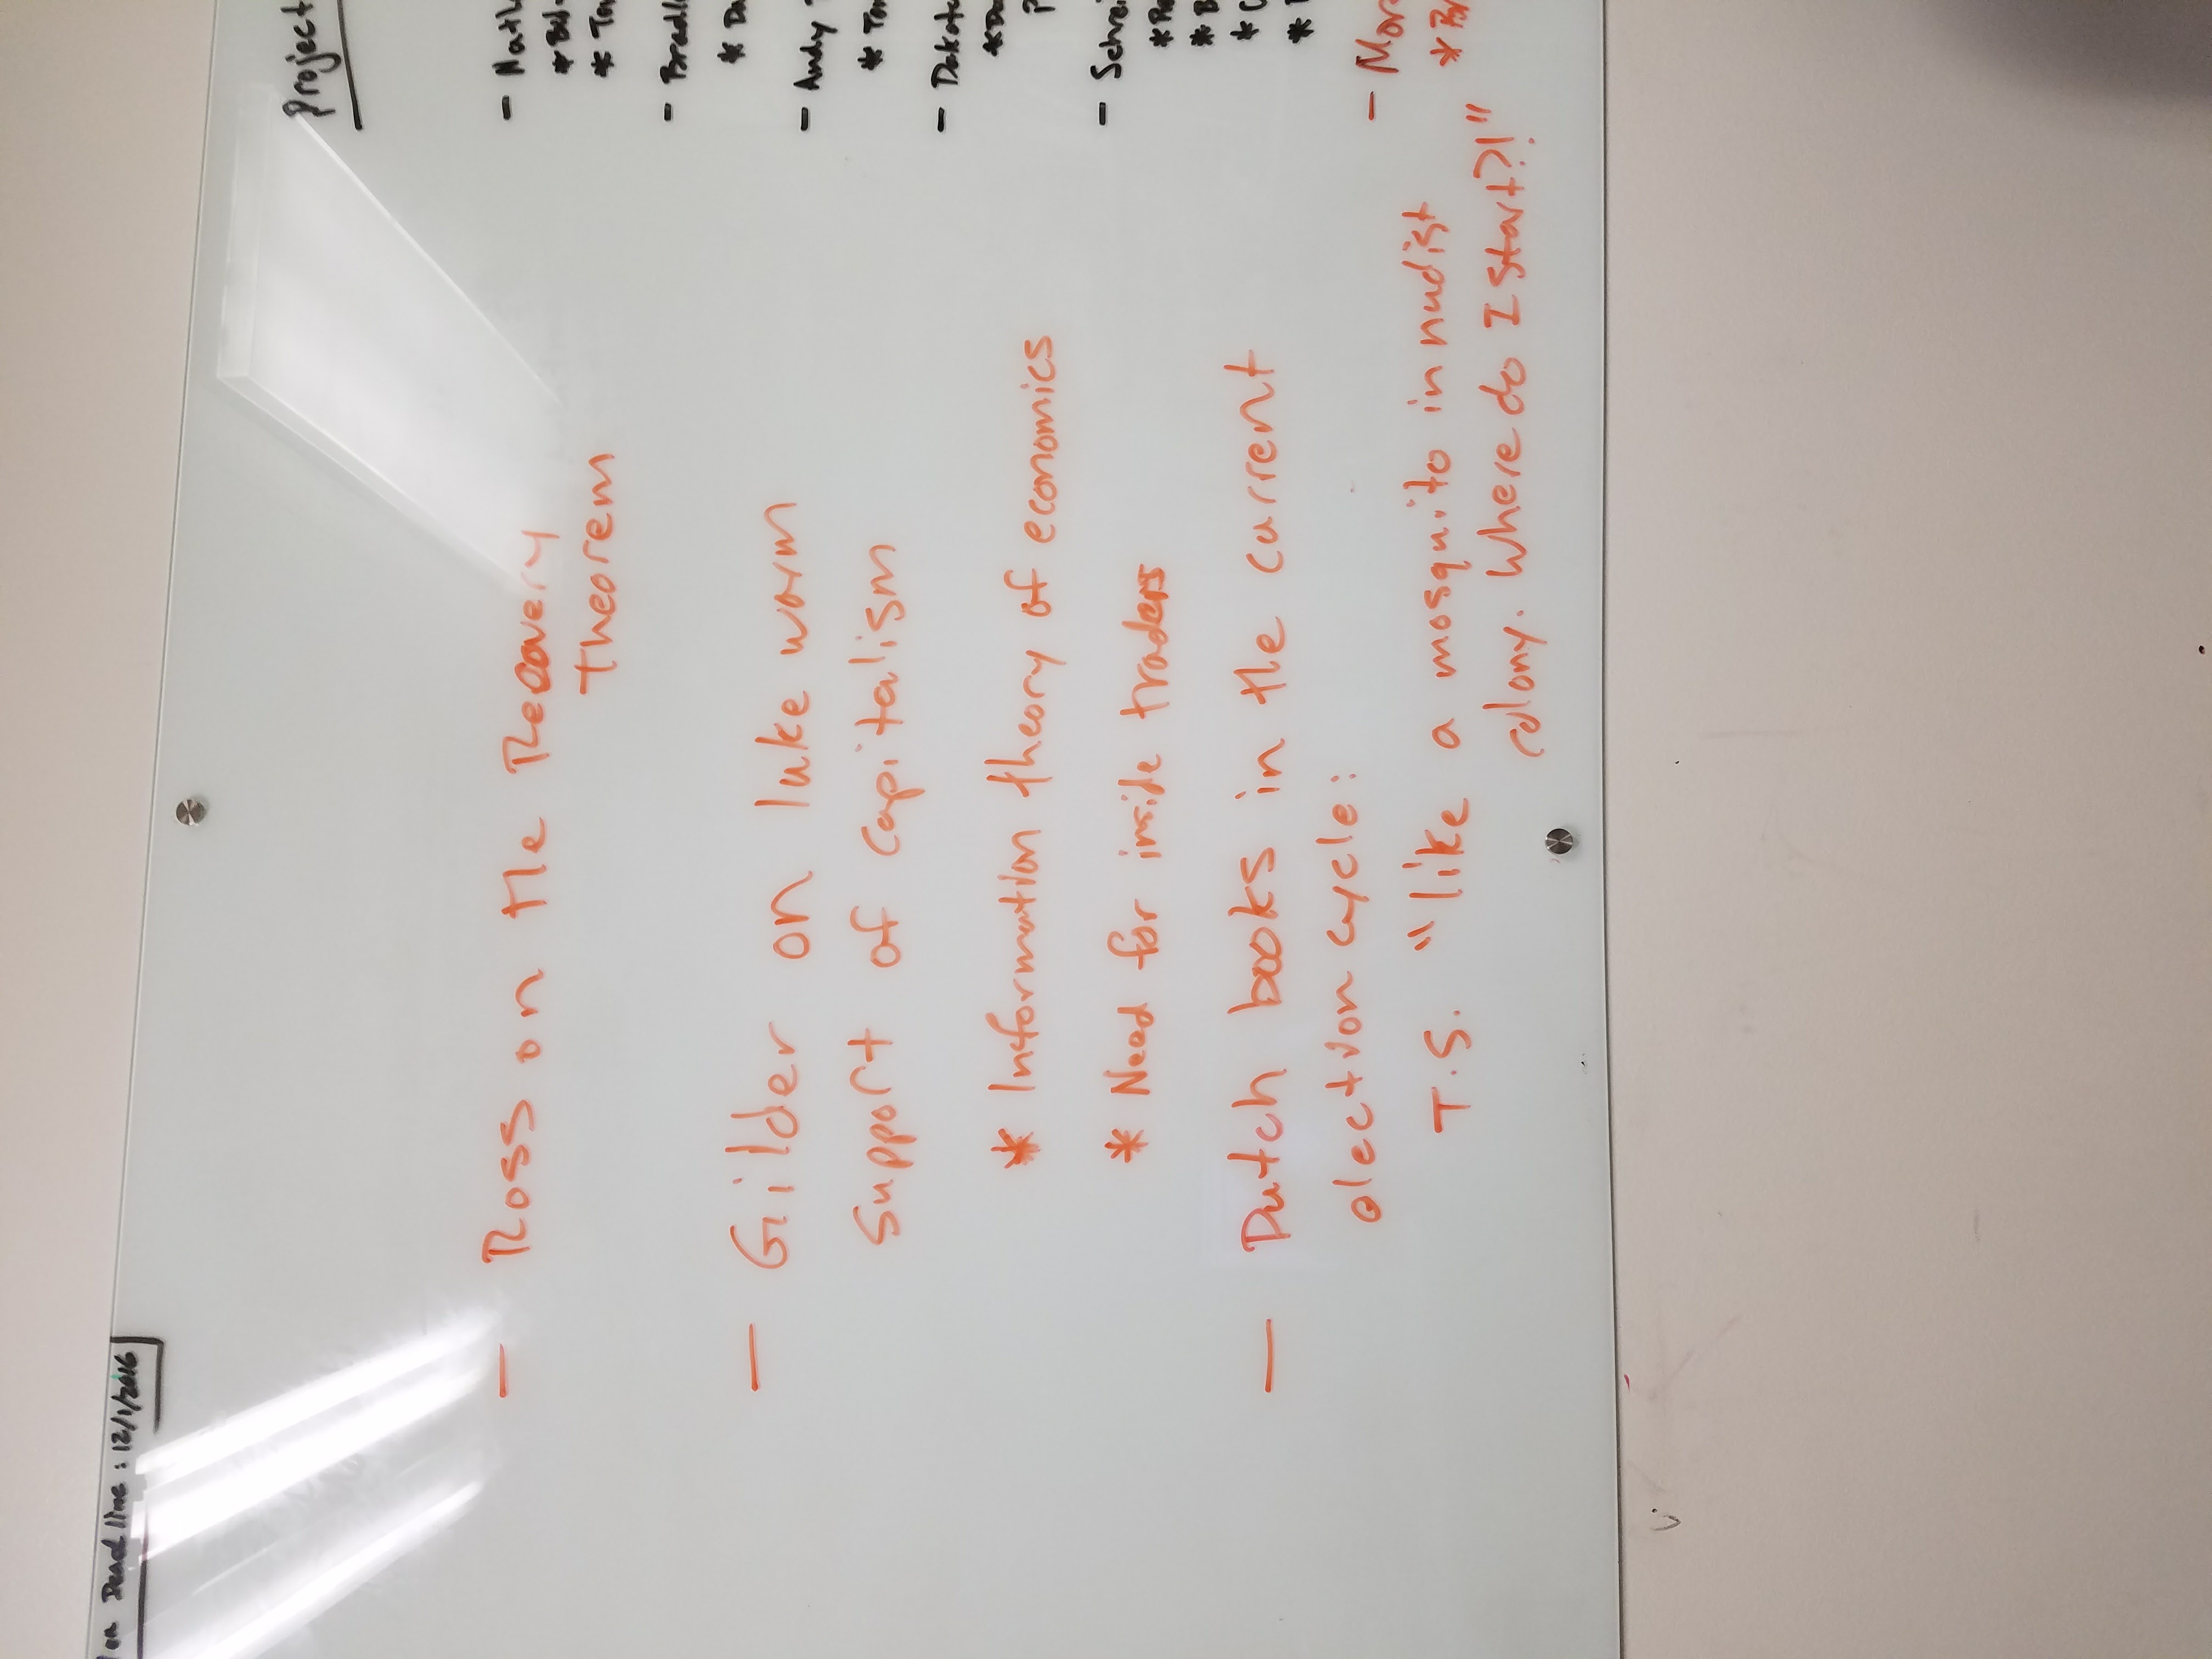 Deadline: 12/1/2016
- Ross on the Recovery
Theorem
- Gilder on luke warm
support of capitalism
* Information theory of economics
* Need for inside traders
- Dutch books in the current
election cycle:
T.S. "like a mosquito in nudist
colony. Where do I start?!"
Project
-
*
*
-
*
- Andy
*
-
*
-
*
*
*
*
-
*